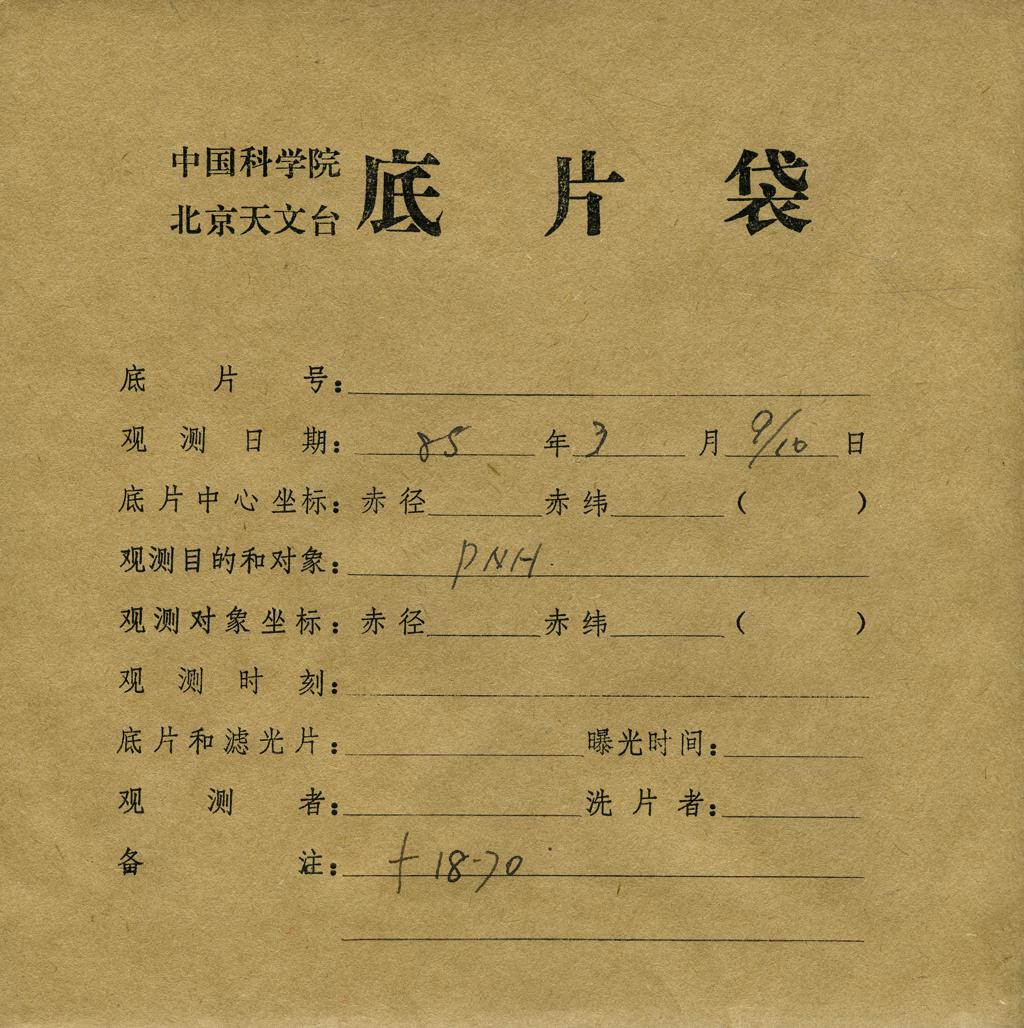 中国科学院
北京天文台
底片袋
底片号：
观测日期： 85 年 3 月 9/10 日
底片中心坐标：赤径 赤纬 （ ）
观测目的和对象： PNH
观测对象坐标：赤径 赤纬 （ ）
观测时刻：
底片和滤光片： 曝光时间：
观测者： 洗片者：
备注： f 18-70